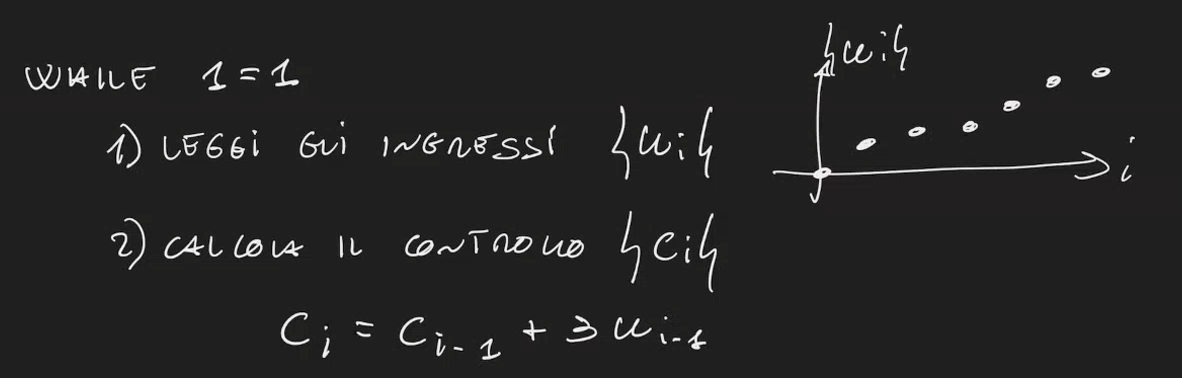 WHILE 1=1
{ui}
1) LEGGI GLI INGRESSI {ui}
i
2) CALCOLA IL CONTROLLO {ci}
Ci = Ci-1 + 3 ui-1